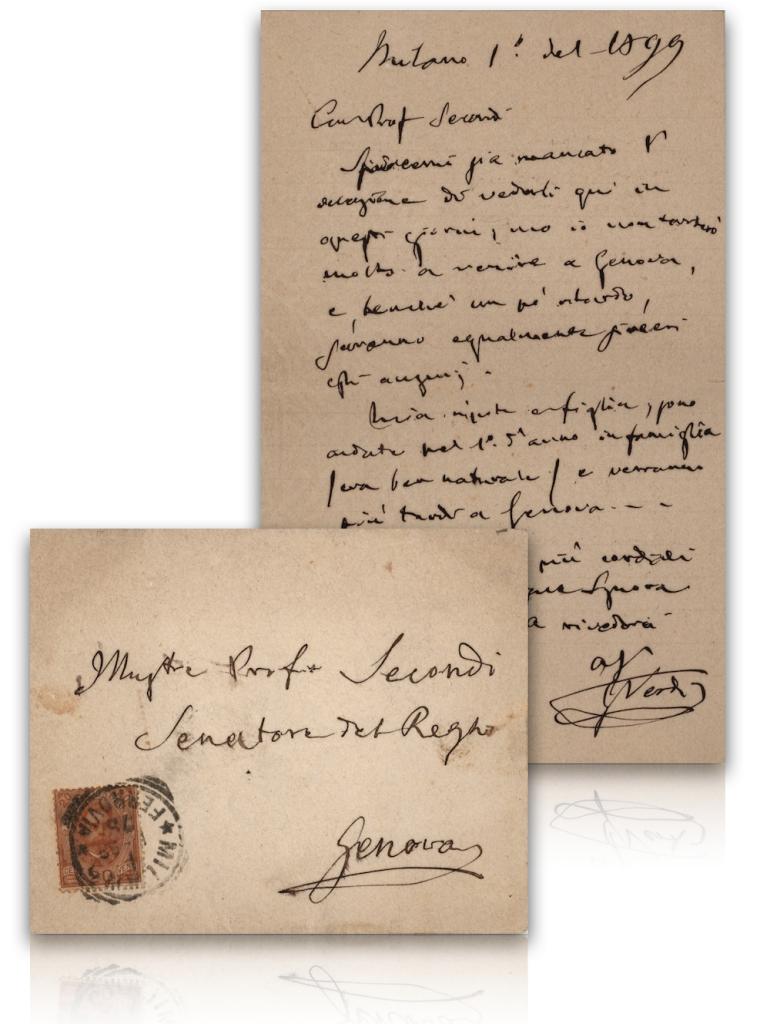 Milano 1.º del 1899
Car Prof Secondi
Spiacemi già mancato l'
occasione di vederli qui in
questi giorni, ma io non tarderò
molto a venire a Genova,
e benchè un pò ritardo,
saranno egualmente sinceri
gli auguri;
Mia nipote e figlia, sono
andate pel 1º. d'anno in famiglia
/ era ben naturale / e verranno
più tardi a Genova - -
più cordiali
Signora
a rivederci
G Verdi
Illustre Profr Secondi
Senatore del Regno
Genova
MILANO
★ FERROVIA ★